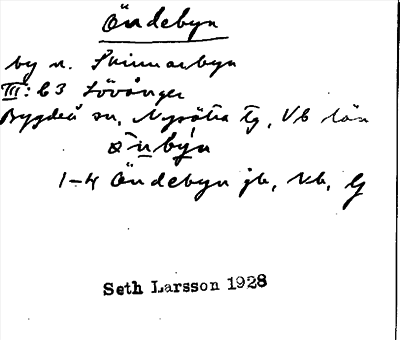 Öndebyn
by n. Skinnarbyn
III: 63 Lövånger
Bygdeå sn, Nysätra tg, Vb län
1-4 Öndebyn jb, kb, G
Seth Larsson 1928